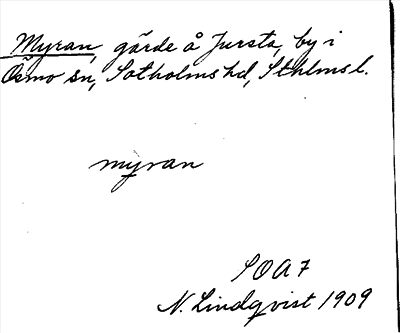 Myran, gärde å Jursta, by i
Ösmo sn, Sotholms hd, Sthlms l.
myran
SOA 7
N. Lindqvist 1909